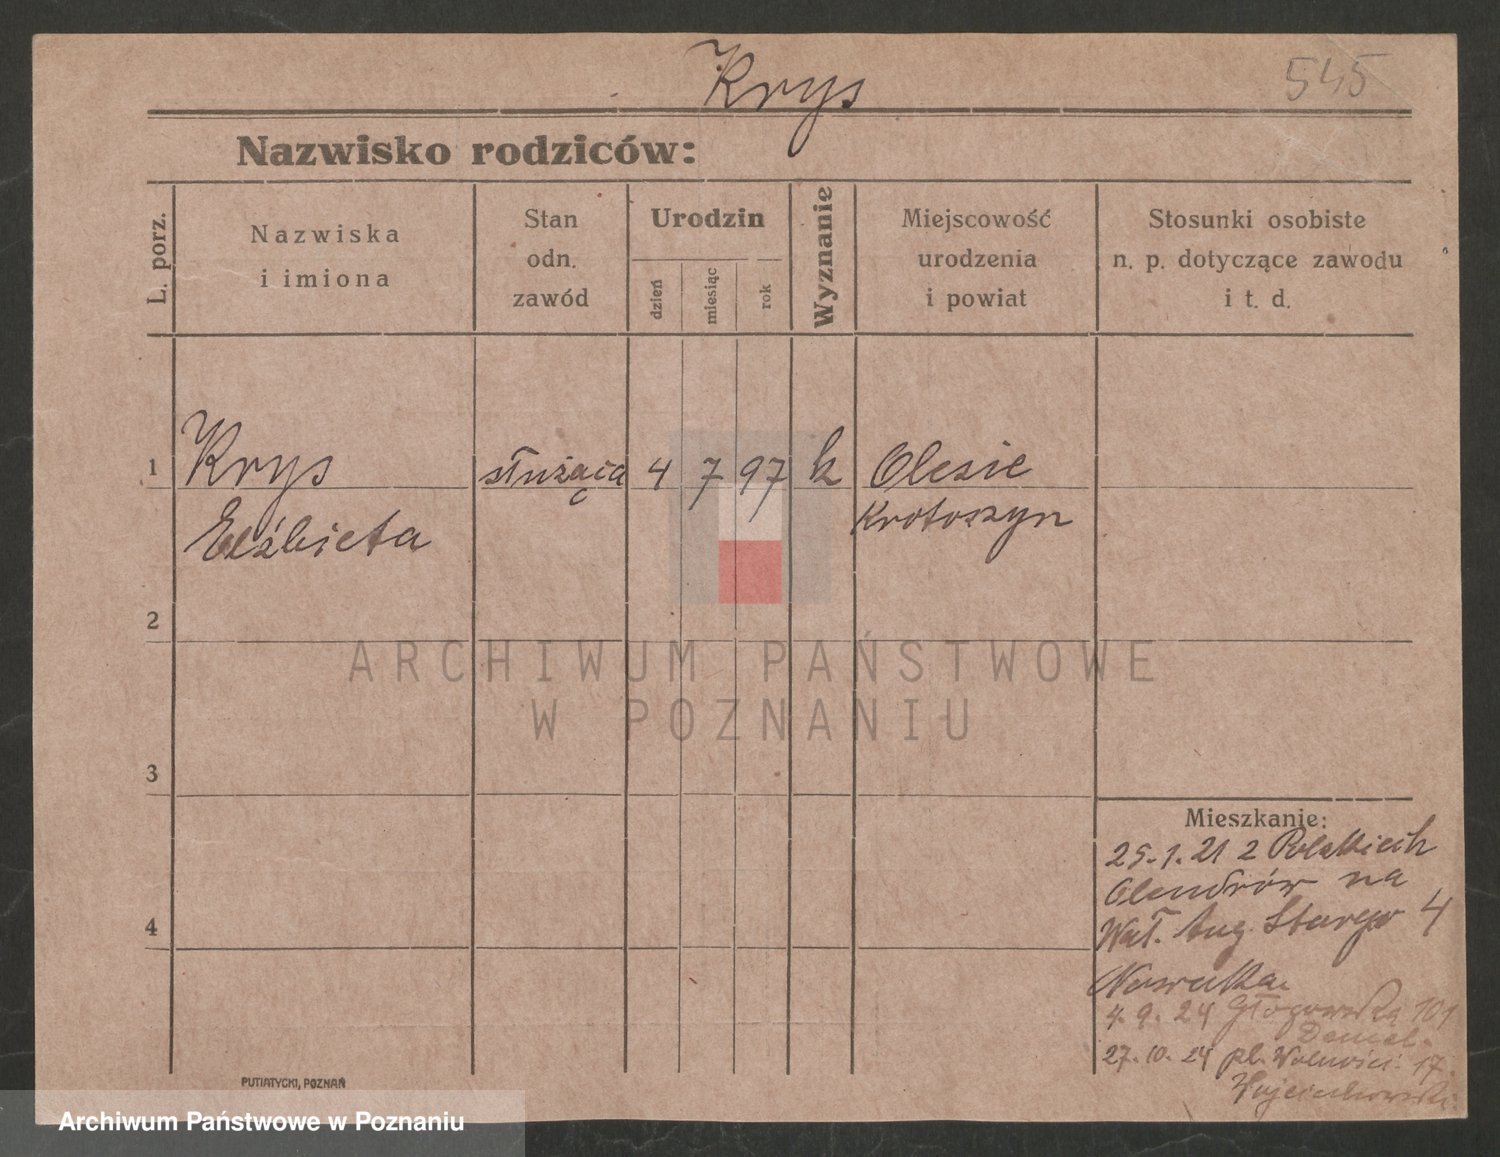 Krys
545
Nazwisko rodziców:
L. porz.
Nazwiska
i imiona
Stan
odn.
zawód
Urodzin
dzień
miesiąc
rok
Wyznanie
Miejscowość
urodzenia
i powiat
Stosunki osobiste
n. p. dotyczące zawodu
i t. d.
1
Krys
służąca
4
7
97
k
Olesie
Elżbieta
Krotoszyn
2
ARCHIWUM PAŃSTWOWE
W POZNANIU
3
Mieszkanie:
25.1.21 z Polskich
Olendrów na
4
Wał. Aug. Starego 4
Nowaka
4.9.24 Głogowska 101
27.10.24 pl. Wolności 17
Wojciechowski
PUTIATYCKI, POZNAŃ
Archiwum Państwowe w Poznaniu